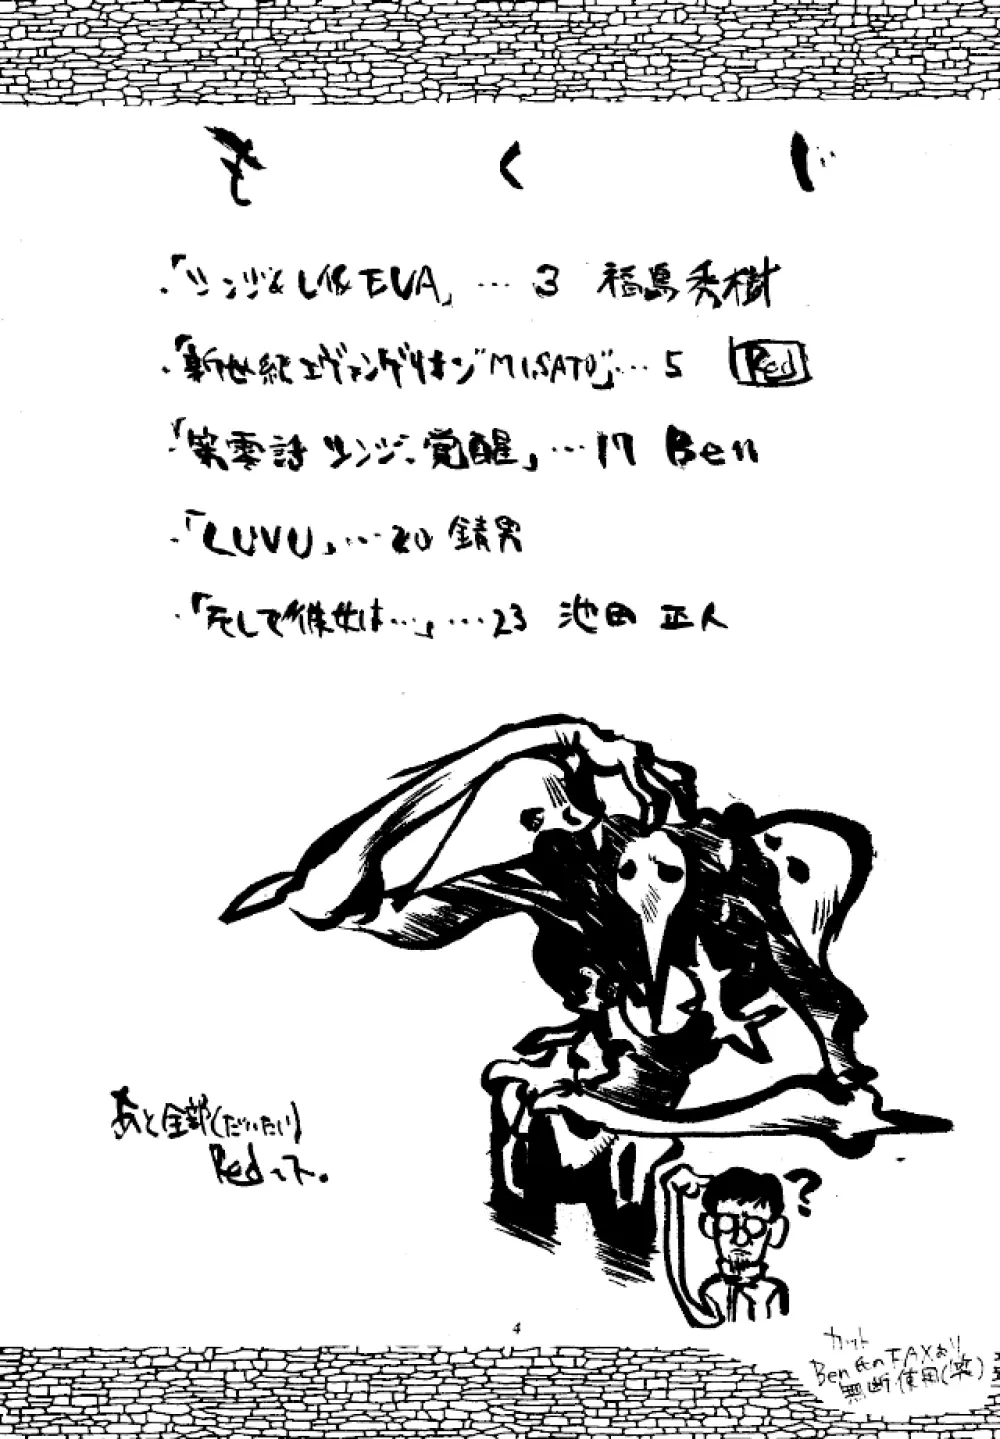 もくじ
・「シンジ&レイEVA」…3 福島秀樹
・「新世紀エヴァンゲリオン"MISATO"」…5 Red
・「第零話 シンジ、覚醒」…17 Ben
・「LUVU」…20 錆男
・「そして彼女は…」…23 池田 正人
あと全部(だいたい)
Redっス。
?
4
カット
Ben氏のFAXより
無断使用(笑)